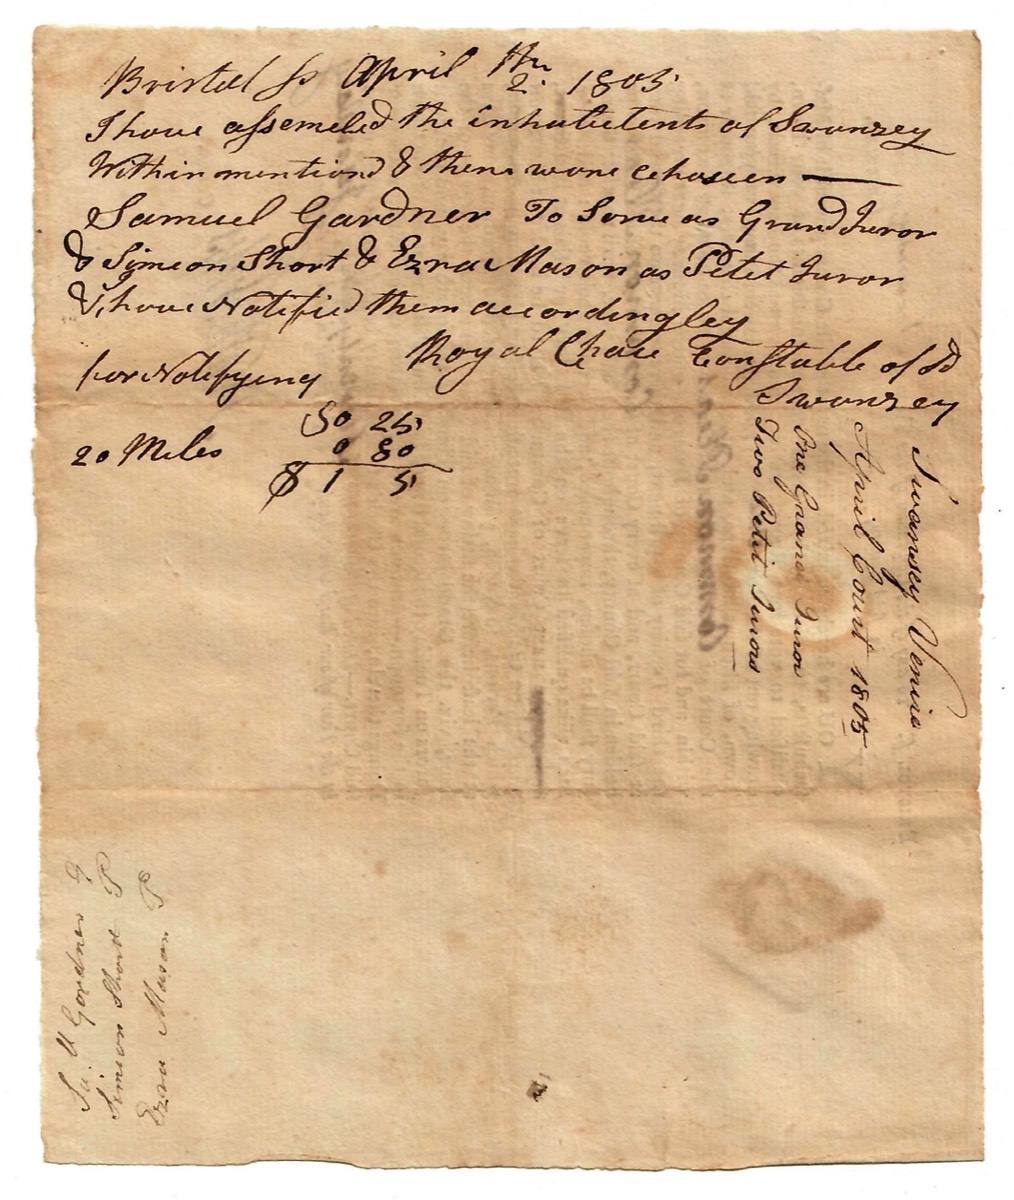 Bristol ss April 2th 1805
I have assemeled the inhabetents of Swanzey
Within mentiond & there were choseen —
Samuel Gardner To Serve as Grand Juror
& Simeon Short & Ezra Mason as Petet Juror
& have Notified them accordingley
Royal Chace Constable of Sd
Swanzey
for Notifying $0 25
20 Miles 0 80
$ 1 5
Swansey Venire
April Court 1805
One Grand Juror
Two Petit Jurors
Sa. ll Gardner G
Simeon Short P
Ezra Mason P